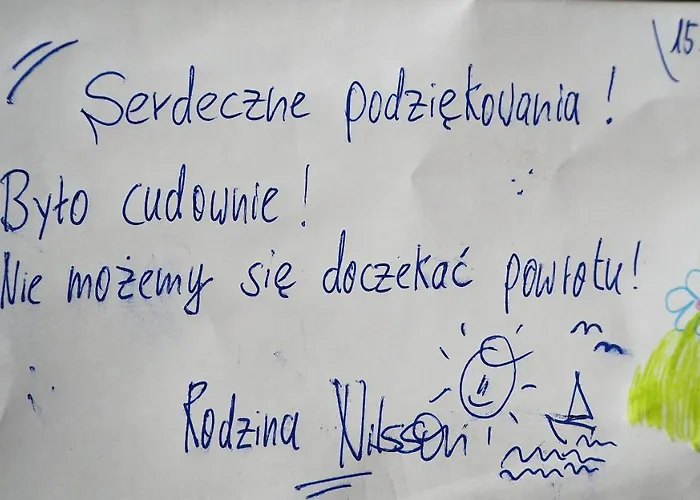 15.
Serdeczne podziękowania!
Było cudownie!
Nie możemy się doczekać powrotu!
Rodzina Nilsson